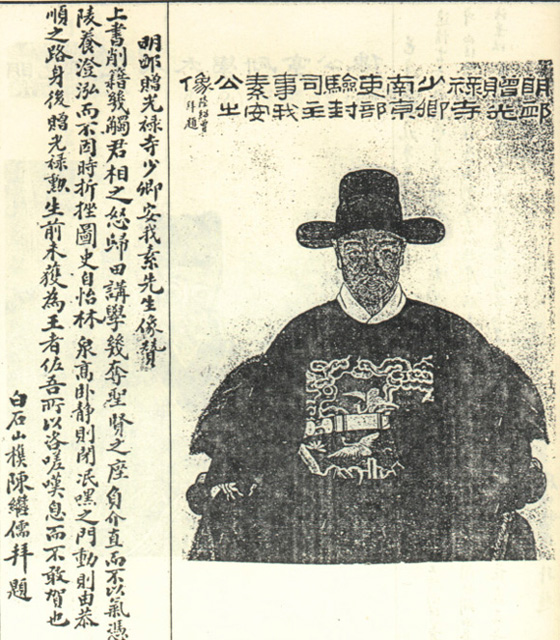 明卹贈光祿寺少卿南京吏部驗封司主事我素安公之像
陸紹曾拜題
明卹贈光祿寺少卿安我素先生像贊
上書削籍幾觸君相之怒歸田講學幾奪聖賢之座負介直而不以氣憑
陵養澄泓而不因時折挫圖史自怡林泉高卧靜則閉泯嘿之門動則由恭
順之路身後贈光祿勲生前未獲為王者佐吾所以咨嗟嘆息而不敢賀也
白石山樵陳繼儒拜題